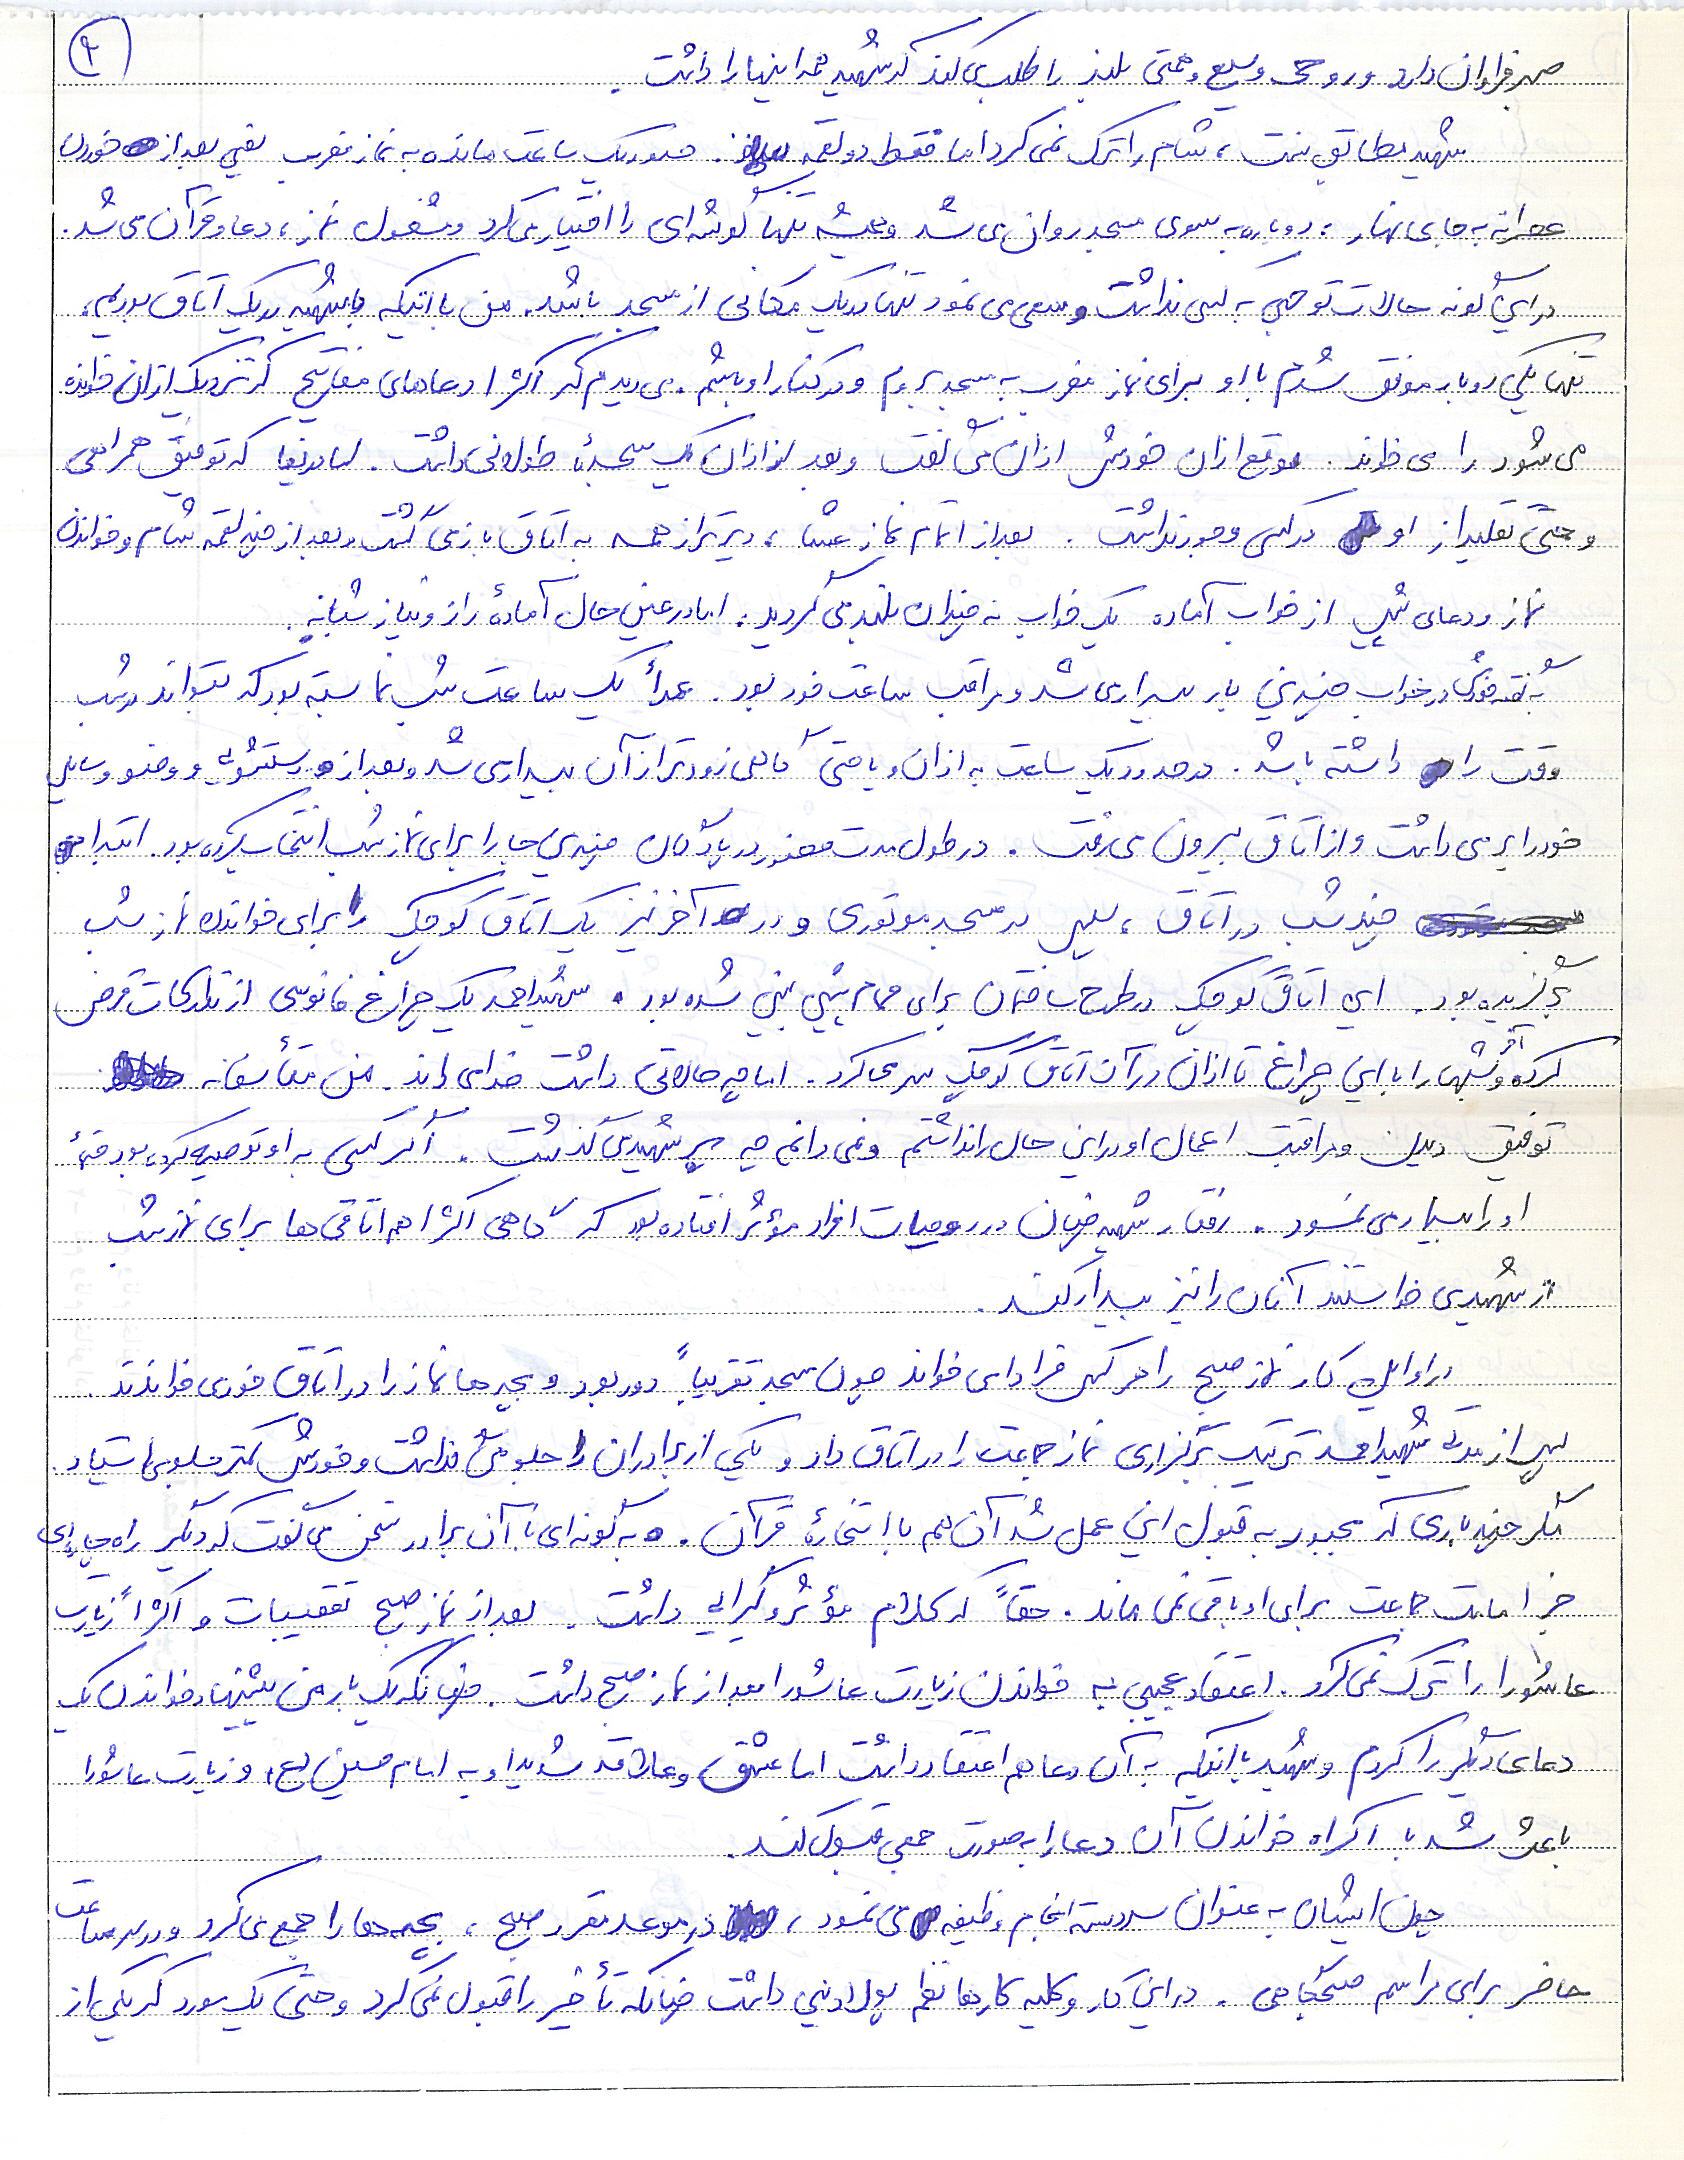 ۲
صبر فراوان دارد و روحی وسیع و همتی بلند را طلب می‌کند که شهید همه اینها را داشت.
شهید مطابق سنت، شام را ترک نمی‌کرد اما فقط دو لقمه. حدود یک ساعت مانده به نماز مغرب یعنی بعد از خوردن
عصرانه به جای نهار، دوباره به سوی مسجد روان می‌شد و همیشه تنها گوشه‌ای را اختیار می‌کرد و مشغول نماز، دعا و قرآن می‌شد.
در این گونه حالات توجهی به کسی نداشت و سعی می‌نمود تنها در یک مکانی از مسجد باشد. من با اینکه با شهید در یک اتاق بودیم،
تنها یکی دو بار موفق شدم با او برای نماز مغرب به مسجد بروم و در کنار او باشم. می‌دیدم که اکثراً دعاهای مفاتیح که نزدیک اذان خوانده
می‌شود را می‌خواند. موقع اذان خودش اذان می‌گفت و بعد از اذان یک سجدۀ طولانی داشت. اما دریغا که توفیق همراهی
و حتی تقلید از او در کسی وجود نداشت. بعد از اتمام نماز عشا، دیرتر از همه به اتاق باز می‌گشت و بعد از چند لقمه شام و خواندن
نماز و دعای قبل از خواب آماده یک خواب نه چندان بلند می‌گردید. اما در عین حال آمادۀ راز و نیاز شبانه.
به گفته خودش در خواب چندین بار بیدار می‌شد و مراقب ساعت خود بود. عمداً یک ساعت شب نما بسته بود که بتواند در شب
وقت را داشته باشد. در حدود یک ساعت به اذان و یا حتی گاهی زودتر از آن بیدار می‌شد و بعد از دستشویی و وضو وسایل
خود را بر می‌داشت و از اتاق بیرون می‌رفت. در طول مدت حضور در پادگان چندین جا را برای نماز شب انتخاب کرده بود. ابتدا
چند شب در اتاق، سپس در مسجد موتوری و در آخر نیز یک اتاق کوچک را برای خواندن نماز شب
برگزیده بود. این اتاق کوچک در طرح ساختمان برای حمام پیش بینی شده بود. شهید احمد یک چراغ فانوسی از تدارکات قرض
کرده و شبهای آخر را با این چراغ تا اذان در آن اتاق کوچک سر می‌کرد. اما چه حالاتی داشت خدا می‌داند. من متأسفانه
توفیق دیدن و مراقبت اعمال او در این حال را نداشتم و نمی‌دانم چه بر شهید می‌گذشت. اگر کسی به او توصیه کرده بود حتماً
او را بیدار می‌نمود. رفتار شهید چنان در روحیات افراد مؤثر افتاده بود که گاهی اکثر هم اتاقی‌ها برای نماز شب
از شهید می‌خواستند آنان را نیز بیدار کند.
در اوایل کار نماز صبح را هر کس فرادا می‌خواند چون مسجد تقریباً دور بود و بچه‌ها نماز را در اتاق خود می‌خواندند.
پس از مدتی شهید احمد ترتیب برگزاری نماز جماعت را در اتاق داد و یکی از برادران را جلو می‌گذاشت و خودش کمتر جلو می‌ایستاد.
مگر چند باری که مجبور به قبول این عمل شد آن هم با استخارۀ قرآن. به گونه‌ای با آن برادر سخن می‌گفت که دیگر راه چاره‌ای
جز امامت جماعت برای او باقی نمی‌ماند. حقاً که کلام مؤثر و گیرایی داشت. بعد از نماز صبح تعقیبات و اکثراً زیارت
عاشورا را ترک نمی‌کرد. اعتقاد عجیبی به خواندن زیارت عاشورا بعد از نماز صبح داشت. چنانکه یک بار من پیشنهاد خواندن یک
دعای دیگر را کردم و شهید با اینکه به آن دعا هم اعتقاد داشت اما عشق و علاقه شدید او به امام حسین (ع) و زیارت عاشورا
باعث شد با اکراه خواندن آن دعا را به صورت جمعی قبول کند.
چون ایشان به عنوان سردسته انجام وظیفه می‌نمود، در موعد مقرر صبح، بچه‌ها را جمع می‌کرد و در سر ساعت
حاضر برای مراسم صبحگاهی. در این کار و کلیه کارها نظم پولادینی داشت چنانکه تأخیر را قبول نمی‌کرد و حتی یک مورد که یکی از